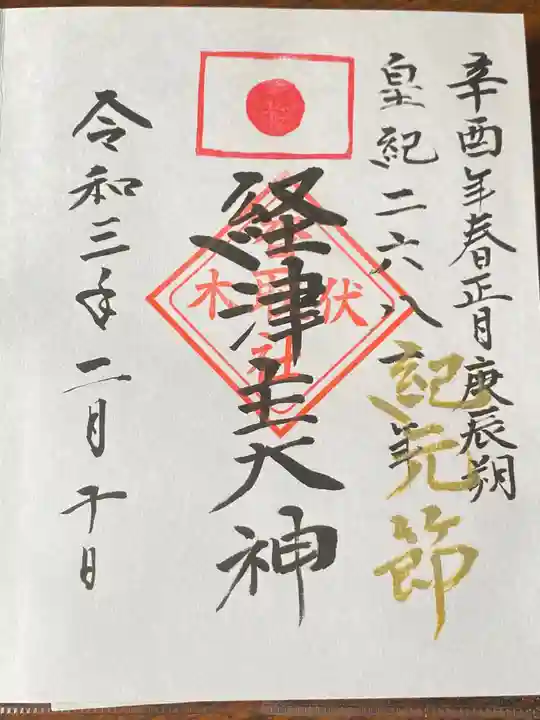 辛酉年春正月庚辰朔
皇紀二六八一年
紀元節
経津主大神
伏木
香取社
令和三年二月十一日